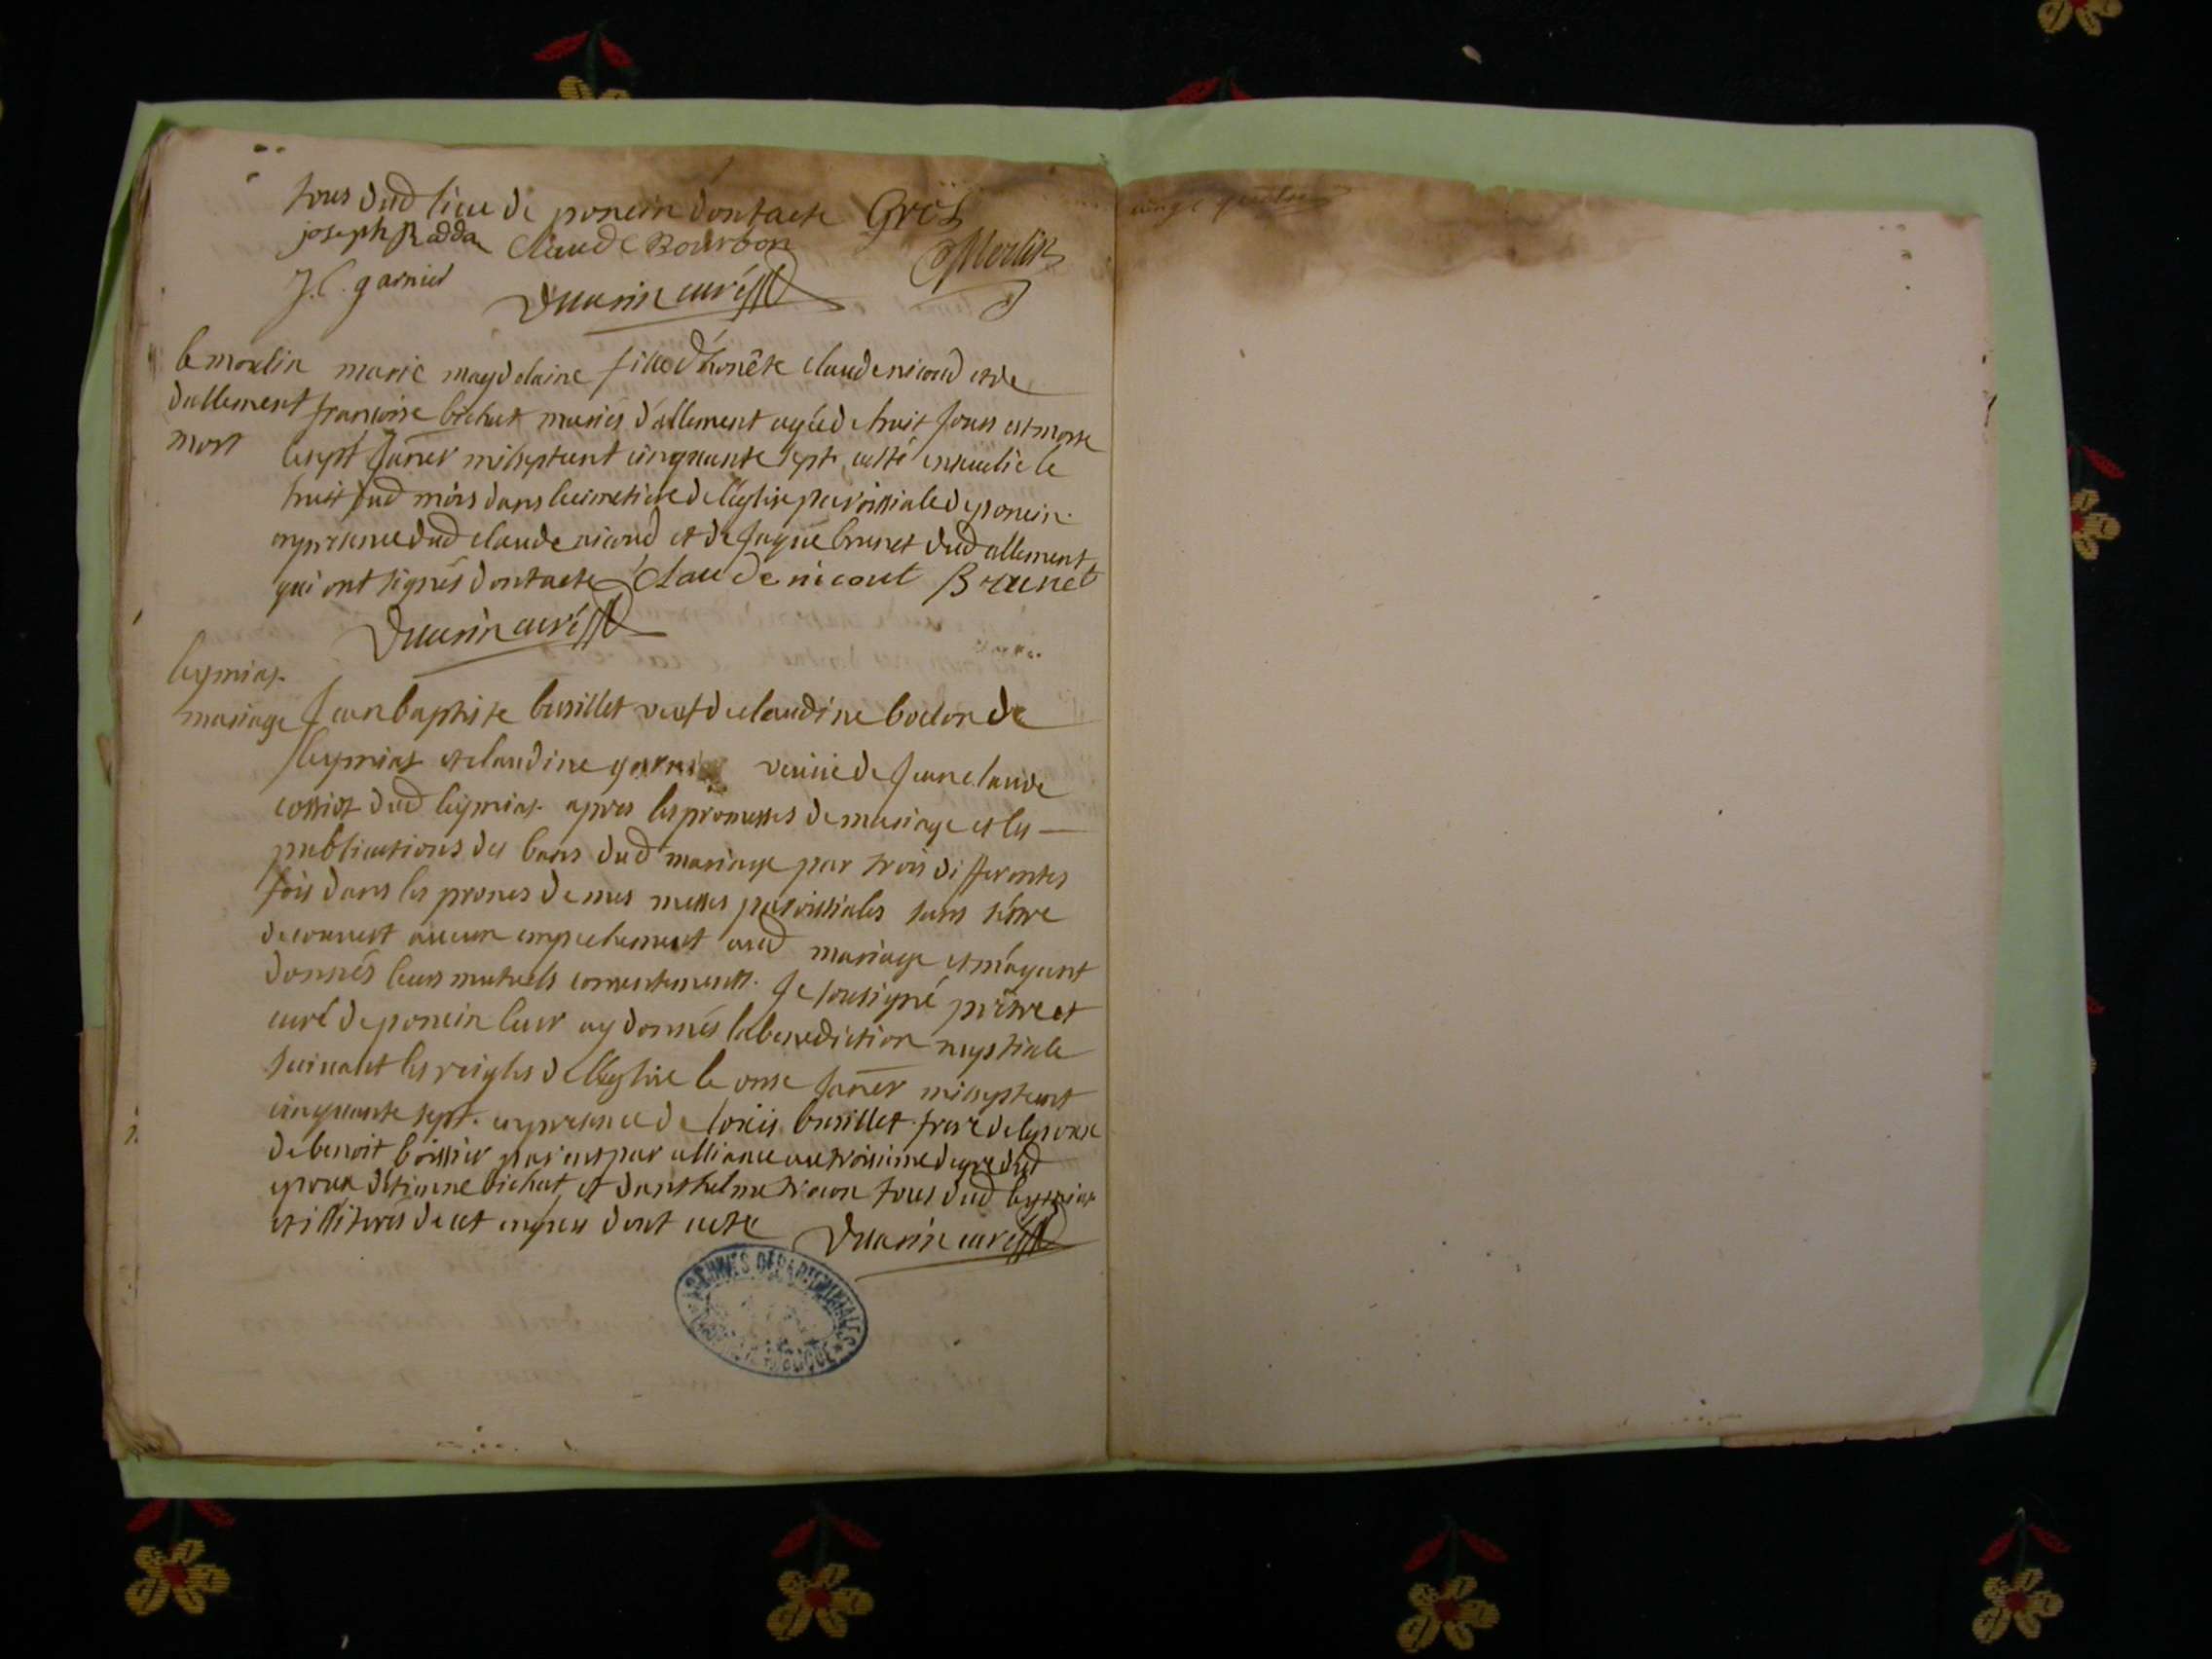 tous dud lieu de poncin dont acte Gros
joseph Radda Claude Bourbon Merlin
J.C. garnier
Duarin curé
le moulin
dallement
mort
marie magdelaine fille d'honête claude nicoud et de
francoise bichat mariés d'allement agée de huit jours est morte
le sept janer mil sept cent cinquante sept, a esté ensevelie le
huit dud mois dans le cimetiere de l'eglise parroissiale de poncin
en presence dud claude nicoud et de jaque brunet dud allement,
qui ont signés dont acte Claude nicout Brunet
Duarin curé
leymiat
mariage
Jean baptiste busillet veuf de claudine bodon de
leymiat et claudine garnier veuve de jean claude
cossiot dud leymiat apres les promesses de mariage et les
publications des bans dud mariage par trois differentes
fois dans les prones de mes messes paroissiales sans s'être
decouvert aucun empechement aud mariage et m'ayant
donnés leurs mutuels consentements. Je soussigné prêtre et
curé de poncin leur ay donnés la benediction nuptiale
suivant les reigles de l'eglise le onse janer mil sept cent
cinquante sept. en presence de louis busillet frere de lepoux
de benoit boissier parent par alliance au troisieme degre dud
epoux d'étienne bichat et danthelme tous dud leymiat
et illiteres de cet enquis dont acte Duarin curé
ARCHIVES DÉPARTEMENTALES